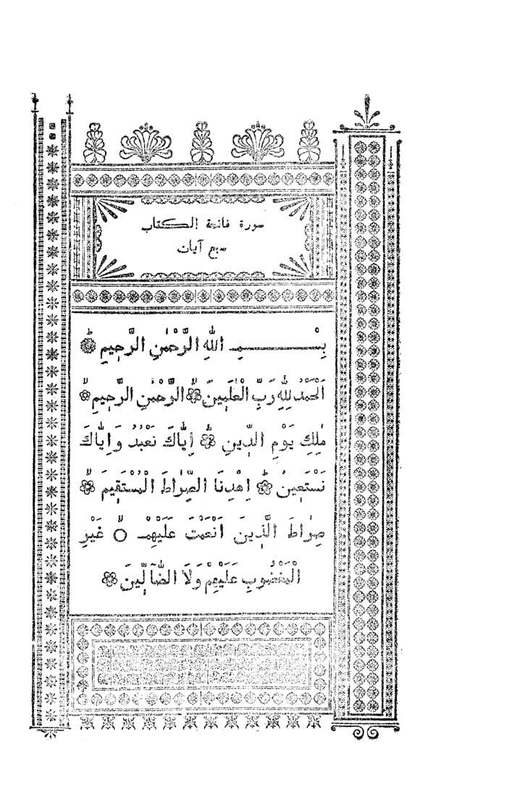 سورة فاتحة الكتاب
سبع آيات
بِسْمِ اللهِ الرَّحْمٰنِ الرَّحِيمِ
اَلْحَمْدُ لِلهِ رَبِّ الْعَالَمِينَ الرَّحْمٰنِ الرَّحِيمِ
مٰلِكِ يَوْمِ الدِّينِ اِيَّاكَ نَعْبُدُ وَاِيَّاكَ
نَسْتَعِينُ اِهْدِنَا الصِّرَاطَ الْمُسْتَقِيمَ
صِرَاطَ الَّذِينَ اَنْعَمْتَ عَلَيْهِمْ غَيْرِ
الْمَغْضُوبِ عَلَيْهِمْ وَلَا الضَّآلِّينَ